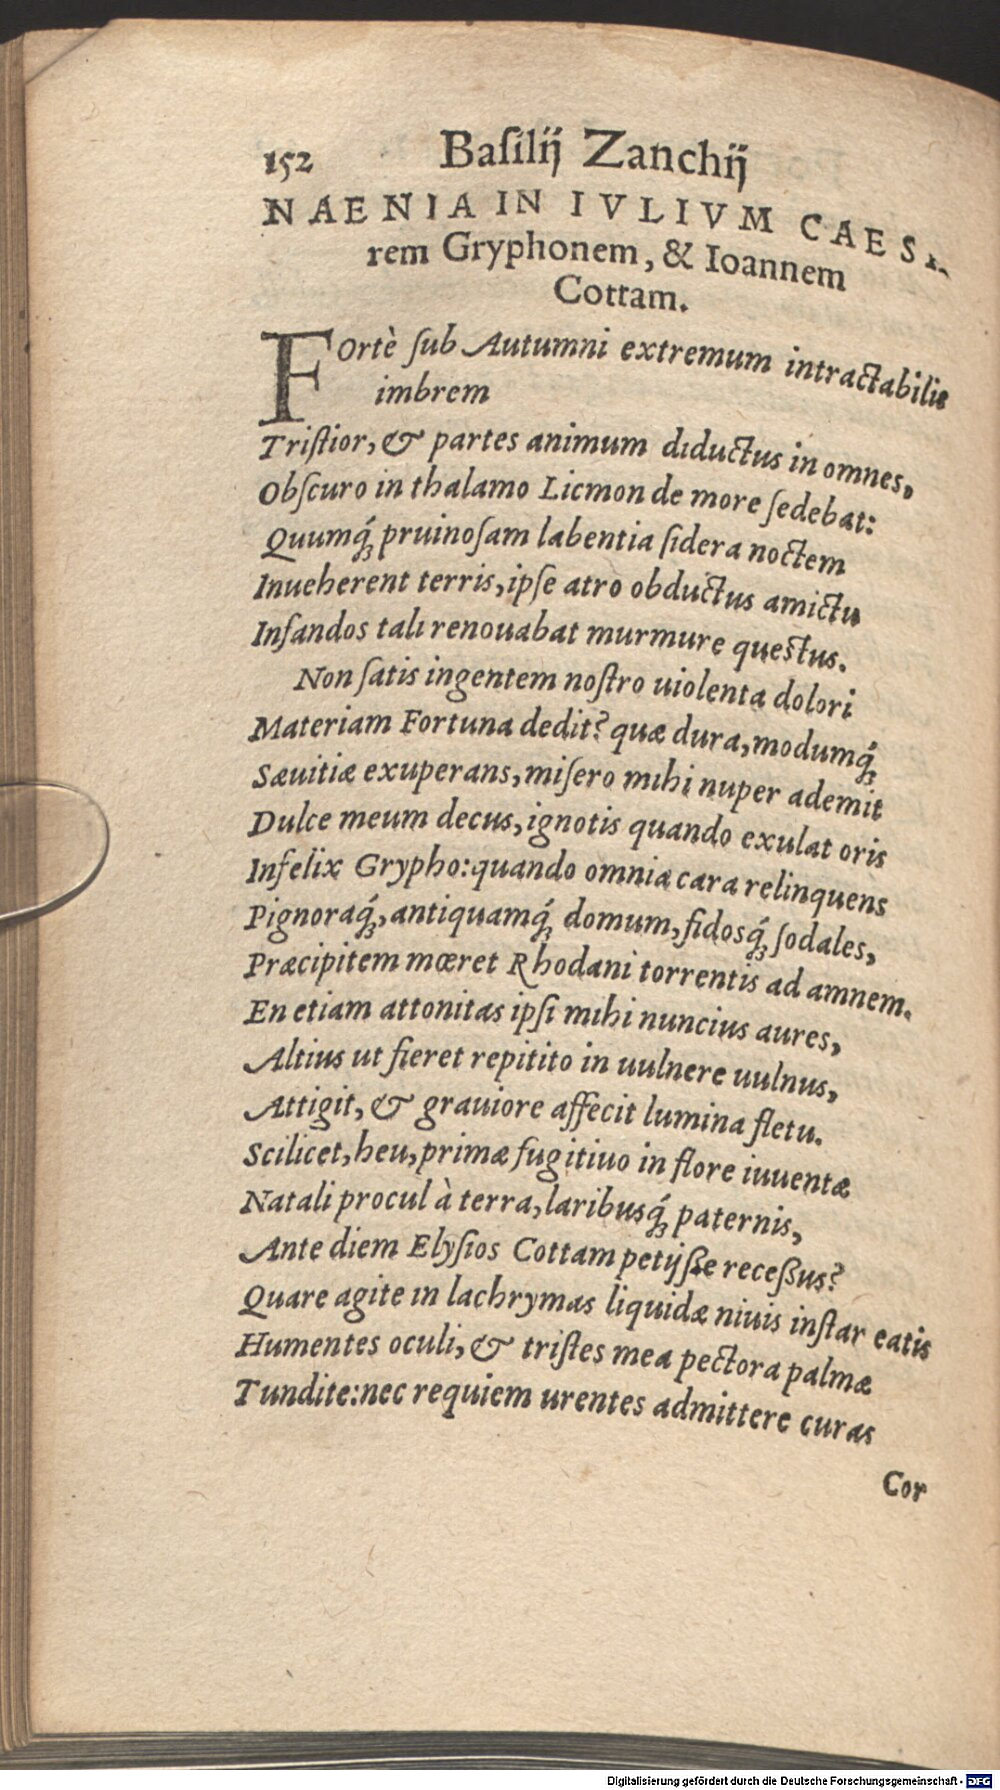 152 Baſilij Zanchij
NAENIA IN IVLIVM CAESA
rem Gryphonem, & Ioannem
Cottam.
FOrtè ſub Autumni extremum intractabilis
imbrem
Triſtior, & partes animum diductus in omnes,
Obſcuro in thalamo Licmon de more ſedebat:
Quumq́; pruinoſam labentia ſidera noctem
Inueherent terris, ipſe atro obductus amictu
Infandos tali renouabat murmure queſtus.
Non ſatis ingentem noſtro uiolenta dolori
Materiam Fortuna dedit? quæ dura, modumq́;
Sæuitiæ exuperans, miſero mihi nuper ademit
Dulce meum decus, ignotis quando exulat oris
Infelix Grypho: quando omnia cara relinquens
Pignoraq́;, antiquamq́; domum, fidosq́; ſodales,
Præcipitem mœret Rhodani torrentis ad amnem.
En etiam attonitas ipſi mihi nuncius aures,
Altius ut fieret repitito in uulnere uulnus,
Attigit, & grauiore affecit lumina fletu.
Scilicet, heu, primæ fugitiuo in flore iuuentæ
Natali procul à terra, laribusq́; paternis,
Ante diem Elyſios Cottam petijſſe receſſus?
Quare agite in lachrymas liquidæ niuis inſtar eatis
Humentes oculi, & triſtes mea pectora palmæ
Tundite: nec requiem urentes admittere curas
Cor
Digitalisierung gefördert durch die Deutsche Forschungsgemeinschaft - DFG